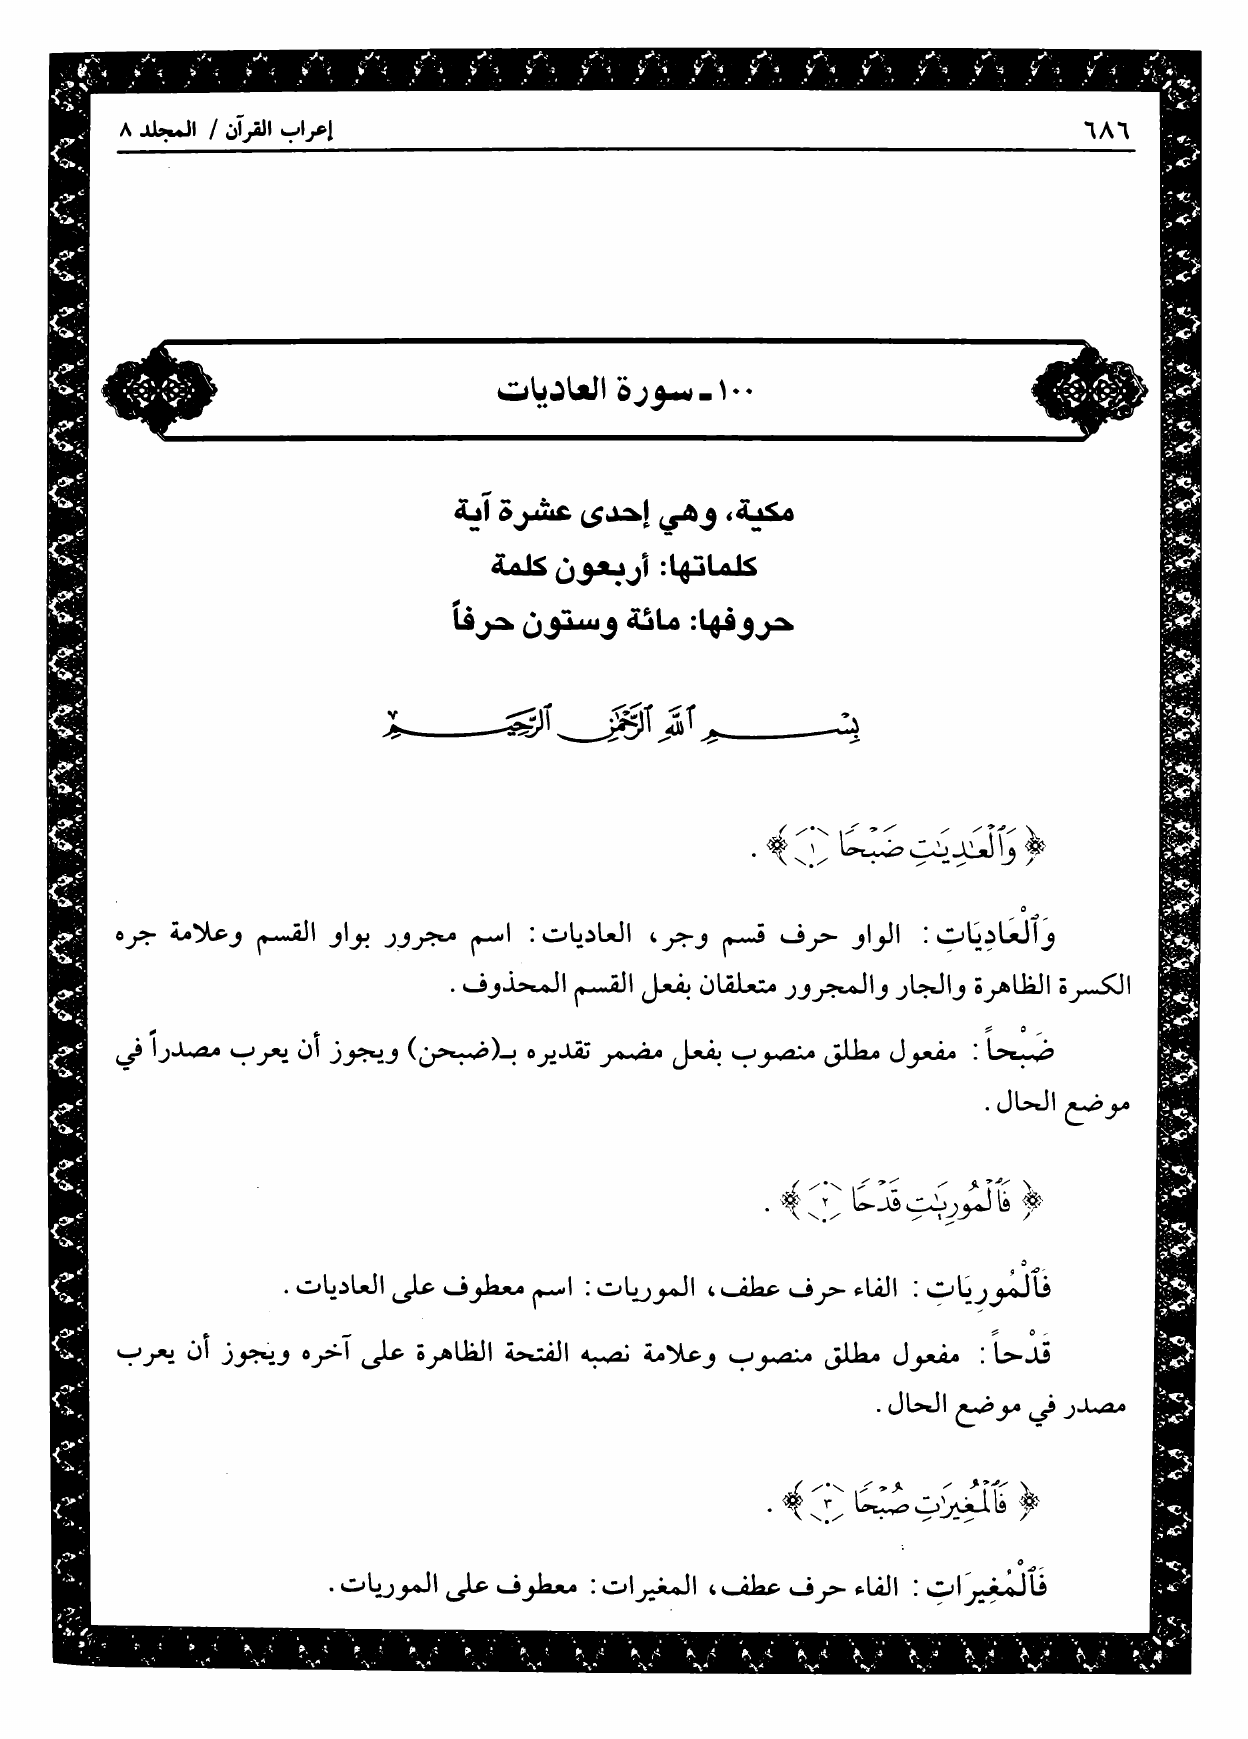 ٦٨٦
إعراب القرآن / المجلد ٨
١٠٠ ـ سورة العاديات
مكية، وهي إحدى عشرة آية
كلماتها: أربعون كلمة
حروفها: مائة وستون حرفاً
بِسْمِ ٱللَّهِ ٱلرَّحْمَٰنِ ٱلرَّحِيمِ
﴿ وَٱلْعَٰدِيَٰتِ ضَبْحًا ۝١ ﴾ .
وَٱلْعَادِيَاتِ : الواو حرف قسم وجر، العاديات : اسم مجرور بواو القسم وعلامة جره
الكسرة الظاهرة والجار والمجرور متعلقان بفعل القسم المحذوف .
ضَبْحاً : مفعول مطلق منصوب بفعل مضمر تقديره بـ(ضبحن) ويجوز أن يعرب مصدراً في
موضع الحال .
﴿ فَٱلْمُورِيَٰتِ قَدْحًا ۝٢ ﴾ .
فَٱلْمُورِيَاتِ : الفاء حرف عطف، الموريات : اسم معطوف على العاديات .
قَدْحاً : مفعول مطلق منصوب وعلامة نصبه الفتحة الظاهرة على آخره ويجوز أن يعرب
مصدر في موضع الحال .
﴿ فَٱلْمُغِيرَٰتِ صُبْحًا ۝٣ ﴾ .
فَٱلْمُغِيرَاتِ : الفاء حرف عطف، المغيرات : معطوف على الموريات .